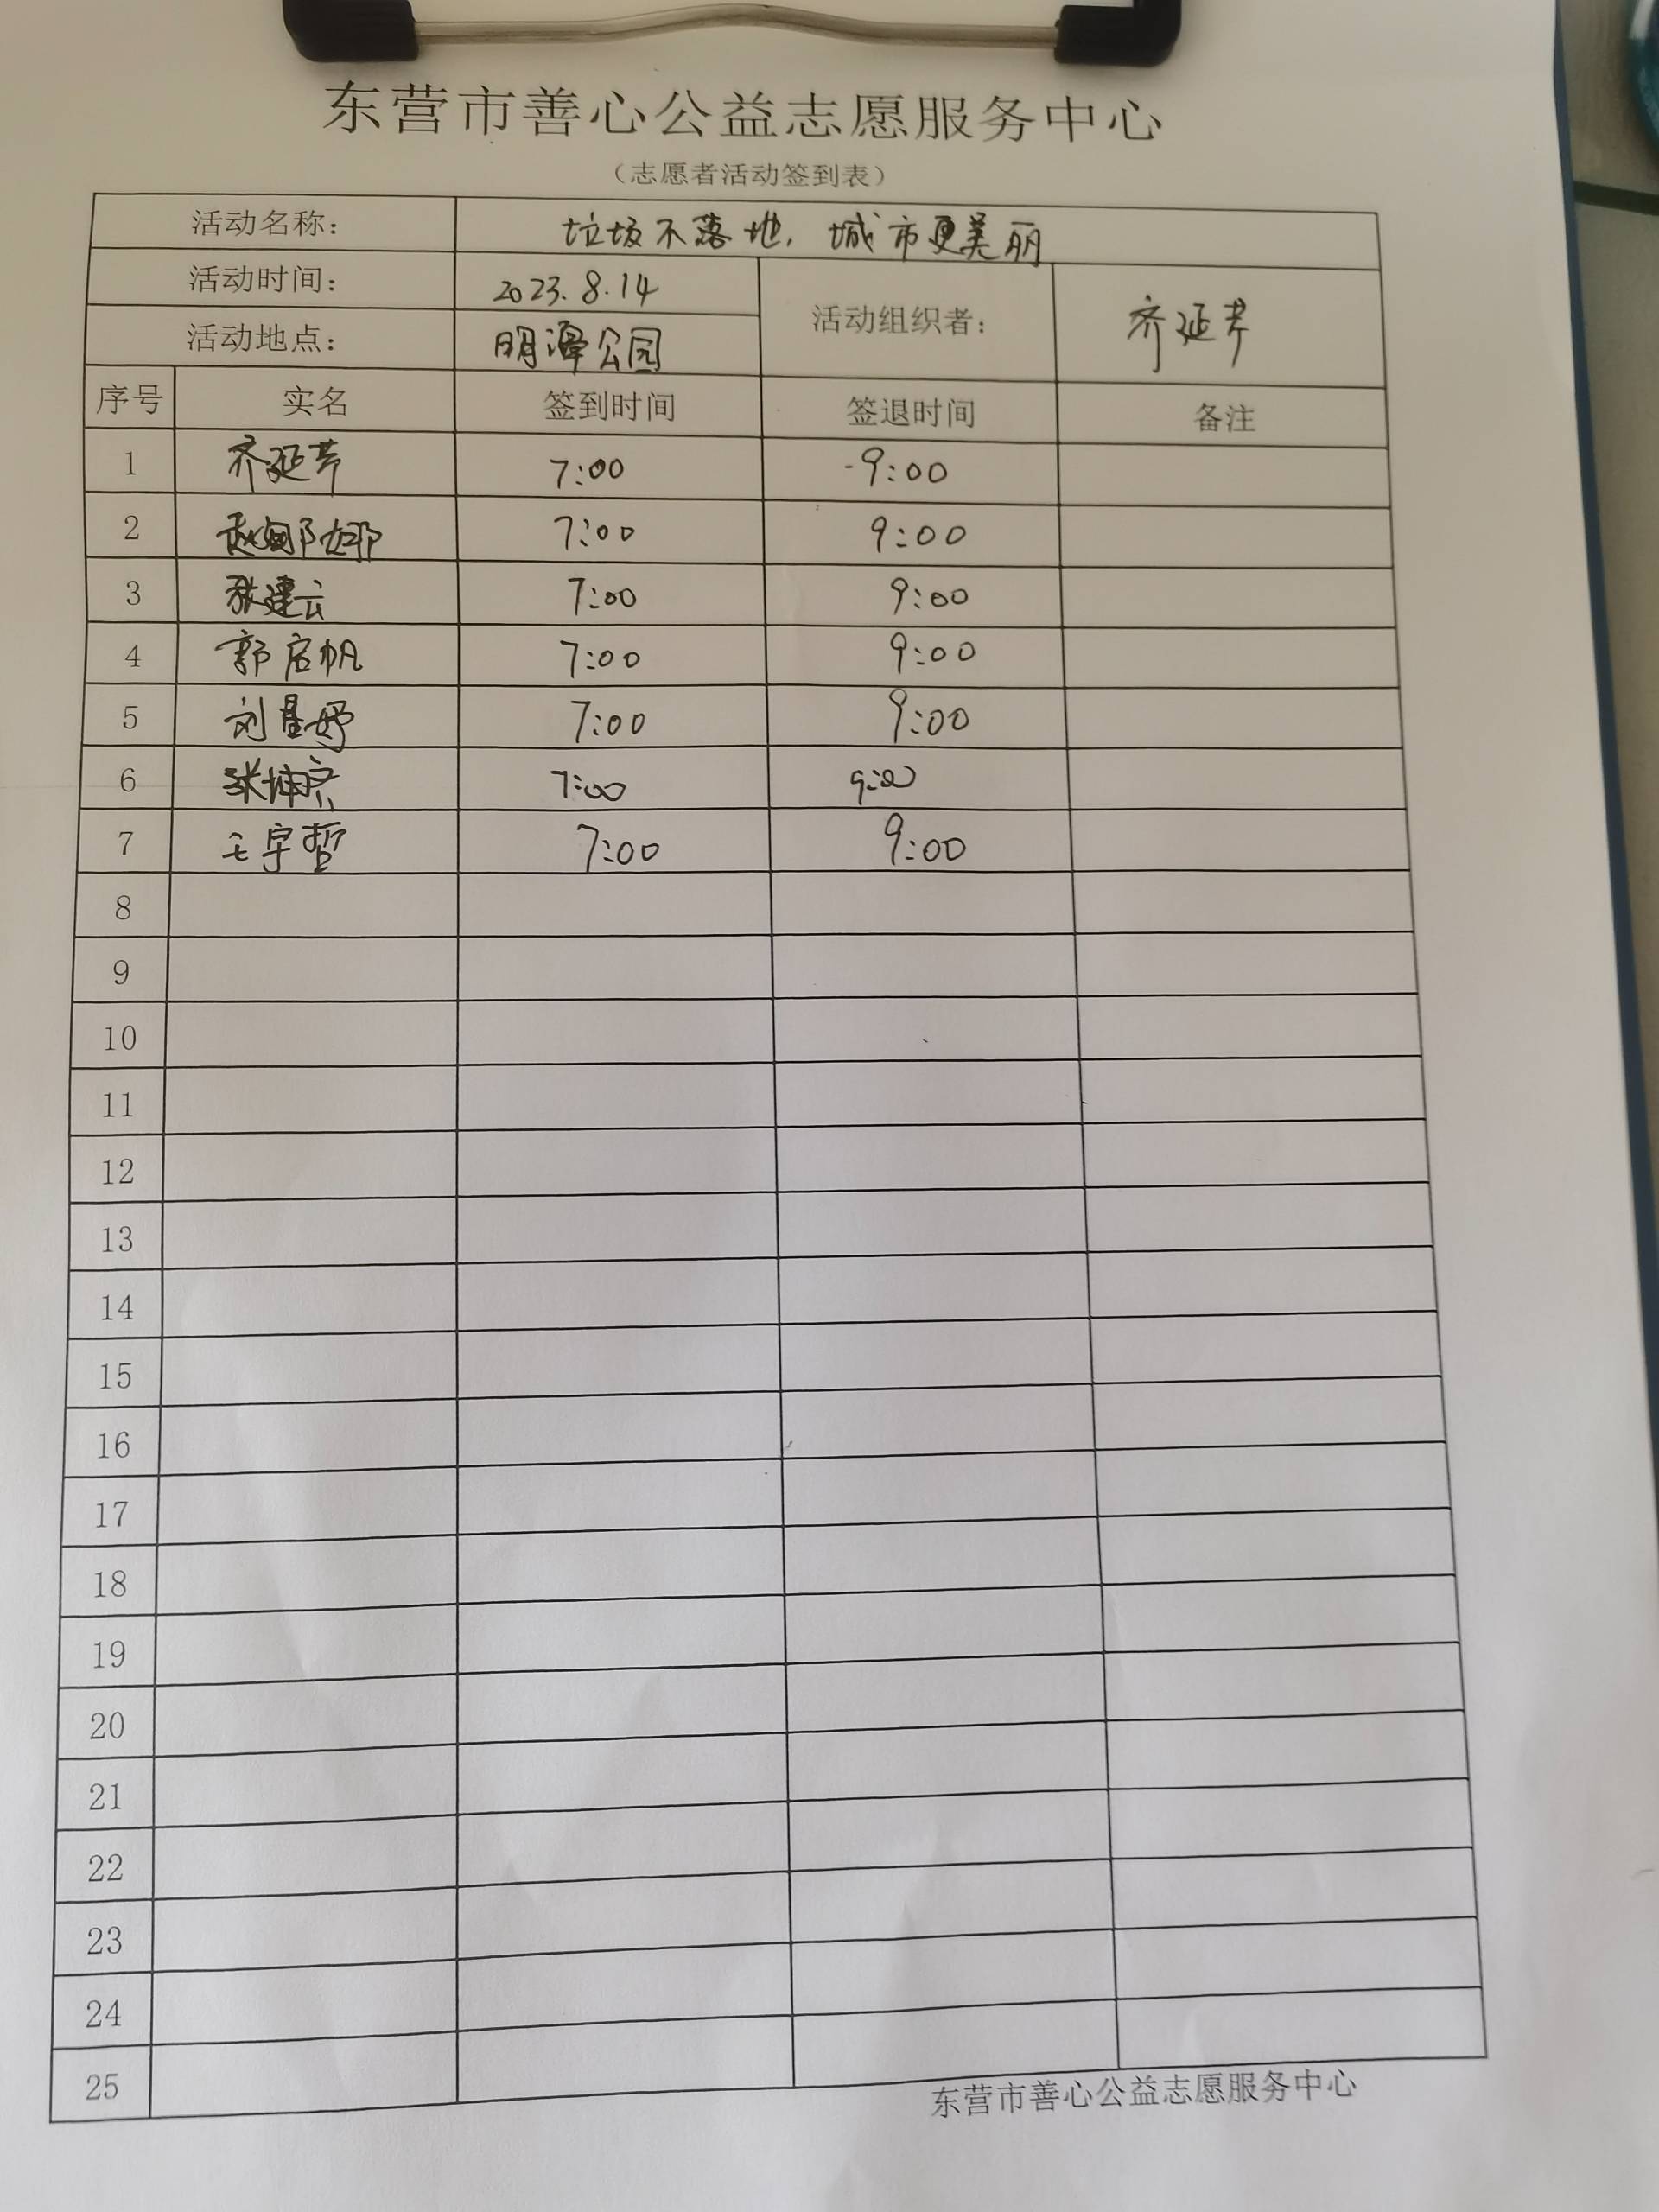 东营市善心公益志愿服务中心
（志愿者活动签到表）
活动名称： 垃圾不落地，城市更美丽
活动时间： 2023.8.14 活动组织者： 齐延芹
活动地点： 明潭公园
序号 实名 签到时间 签退时间 备注
1 齐延芹 7:00 9:00
2 赵娜娜 7:00 9:00
3 张建云 7:00 9:00
4 郭启帆 7:00 9:00
5 刘星妤 7:00 9:00
6 7:00 9:00
7 王宇哲 7:00 9:00
8
9
10
11
12
13
14
15
16
17
18
19
20
21
22
23
24
25
东营市善心公益志愿服务中心